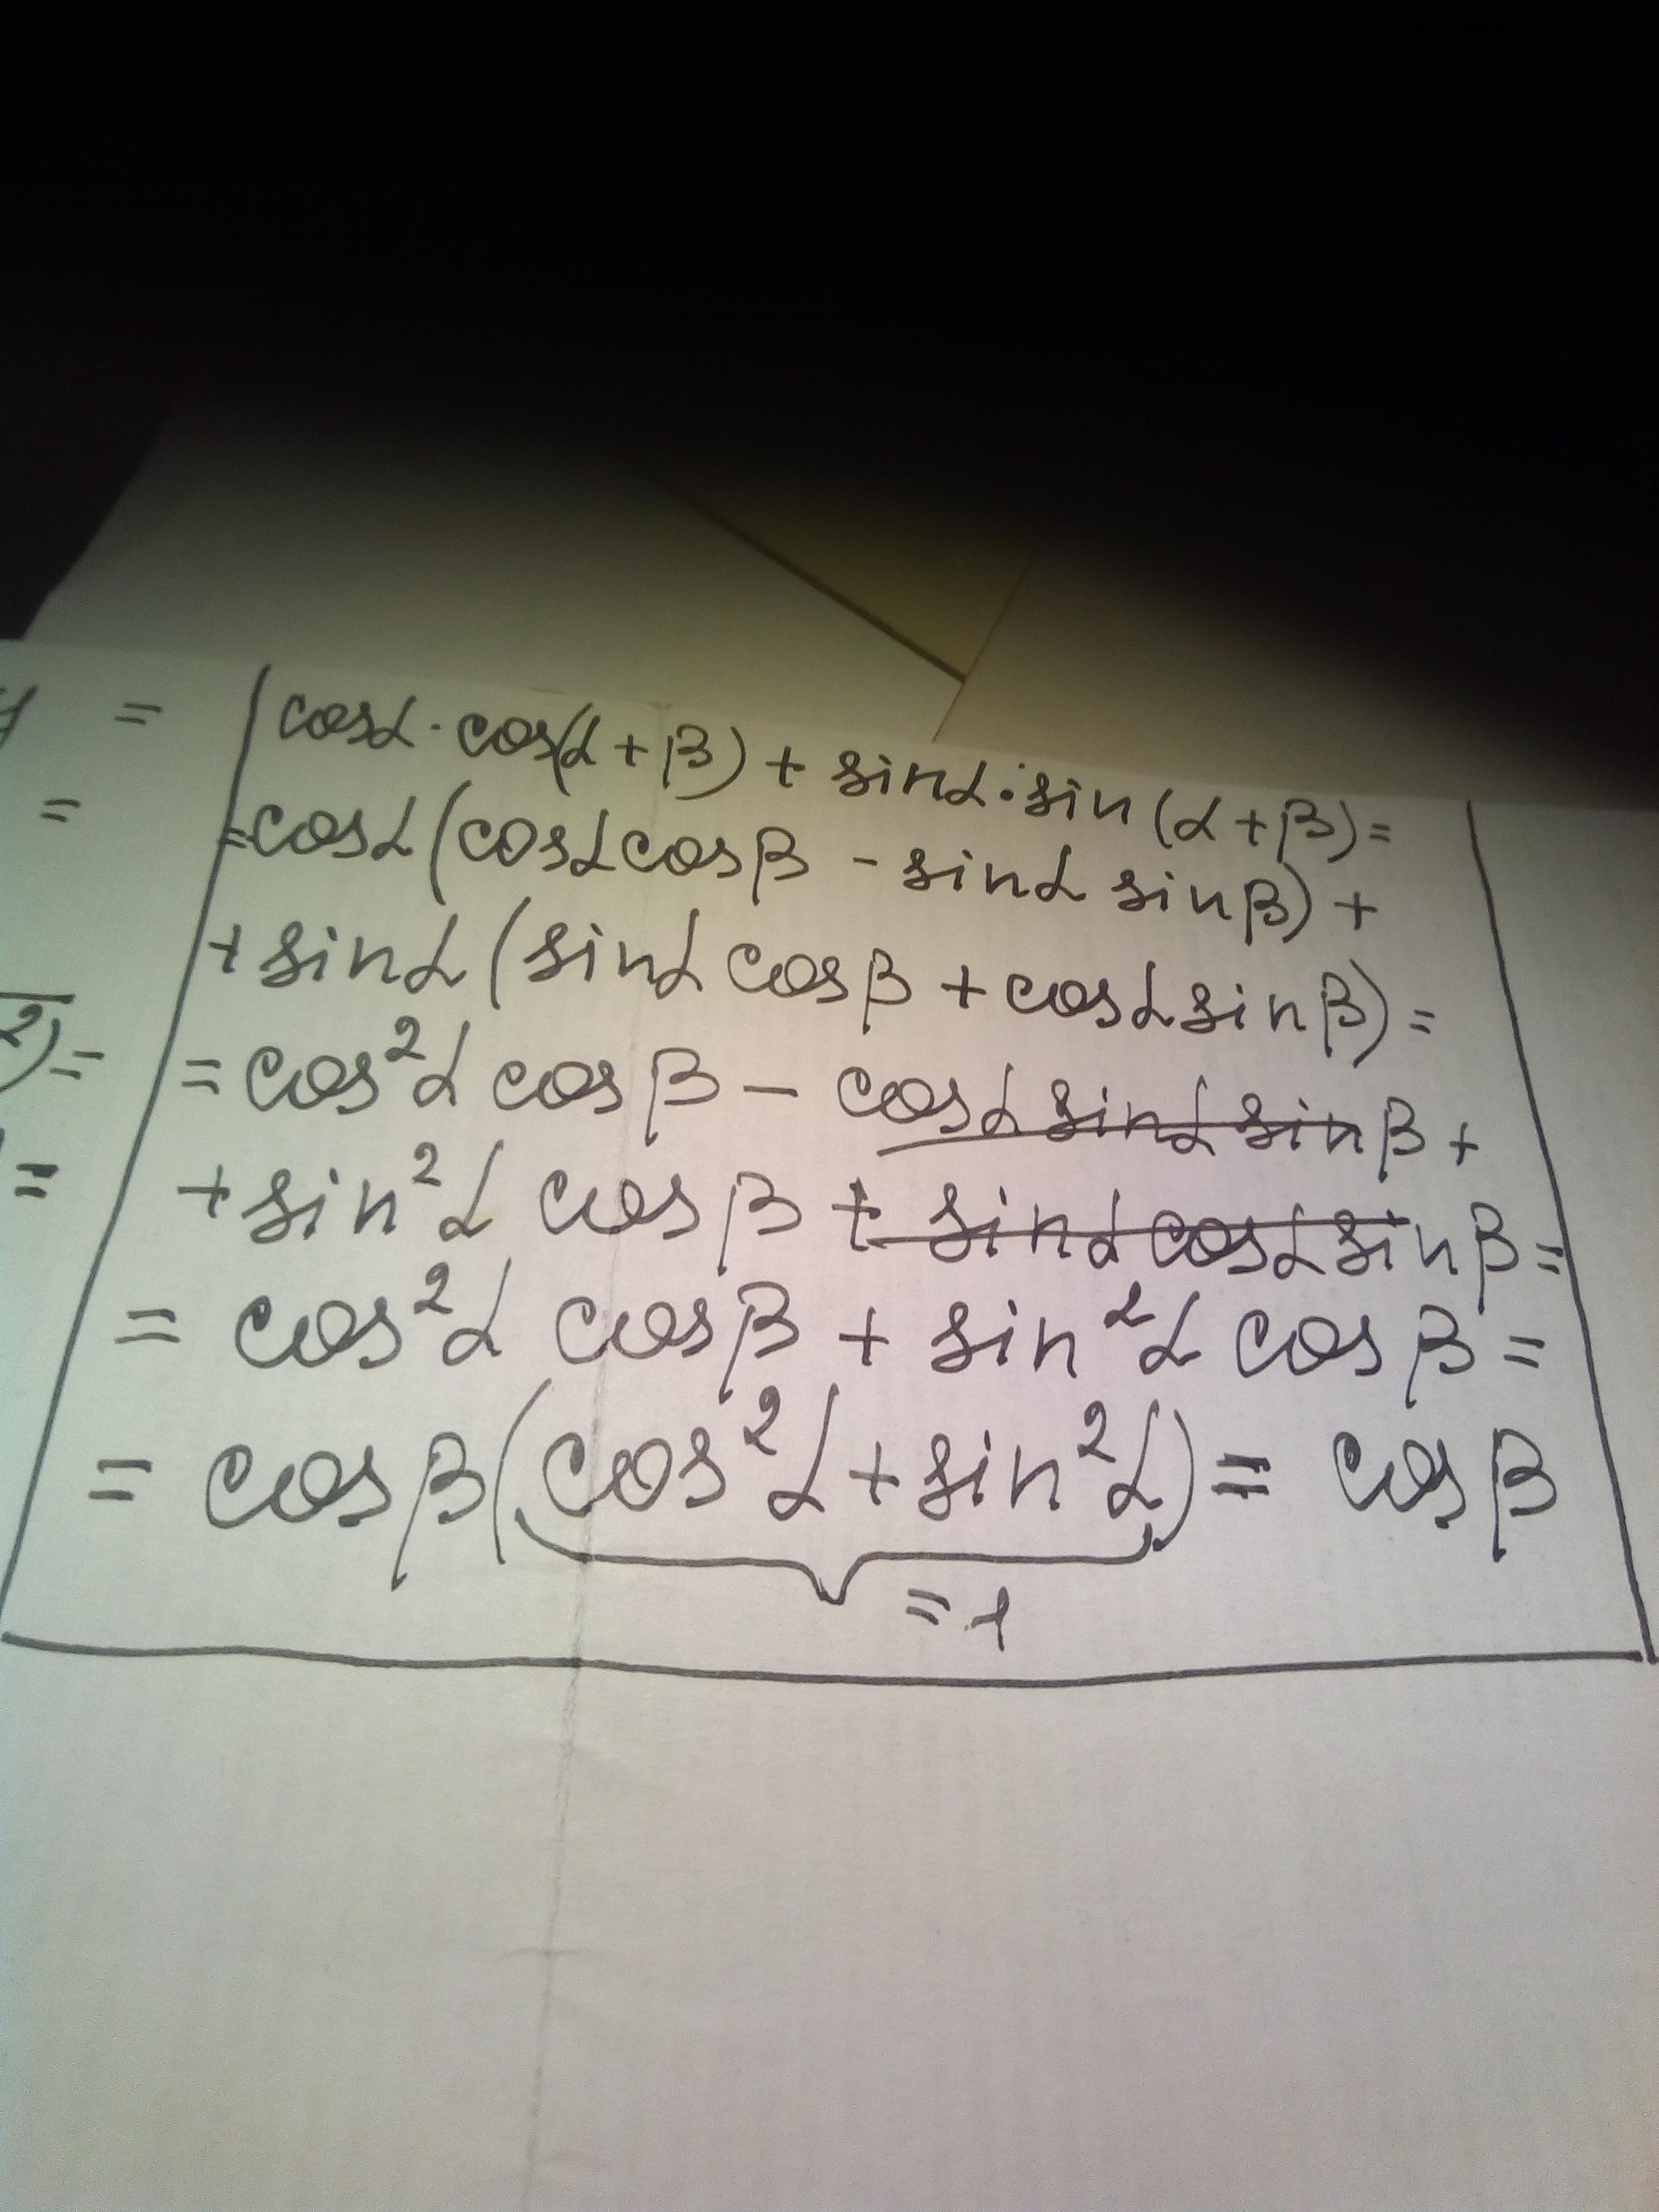 = cosα · cos(α + β) + sinα · sin(α + β) =
= = cosα(cosα cosβ - sinα sinβ) +
+ sinα(sinα cosβ + cosα sinβ) =
2) = = cos²α cosβ - cosα sinα sinβ +
= + sin²α cosβ + sinα cosα sinβ =
= cos²α cosβ + sin²α cosβ =
= cosβ(cos²α + sin²α) = cosβ
= 1